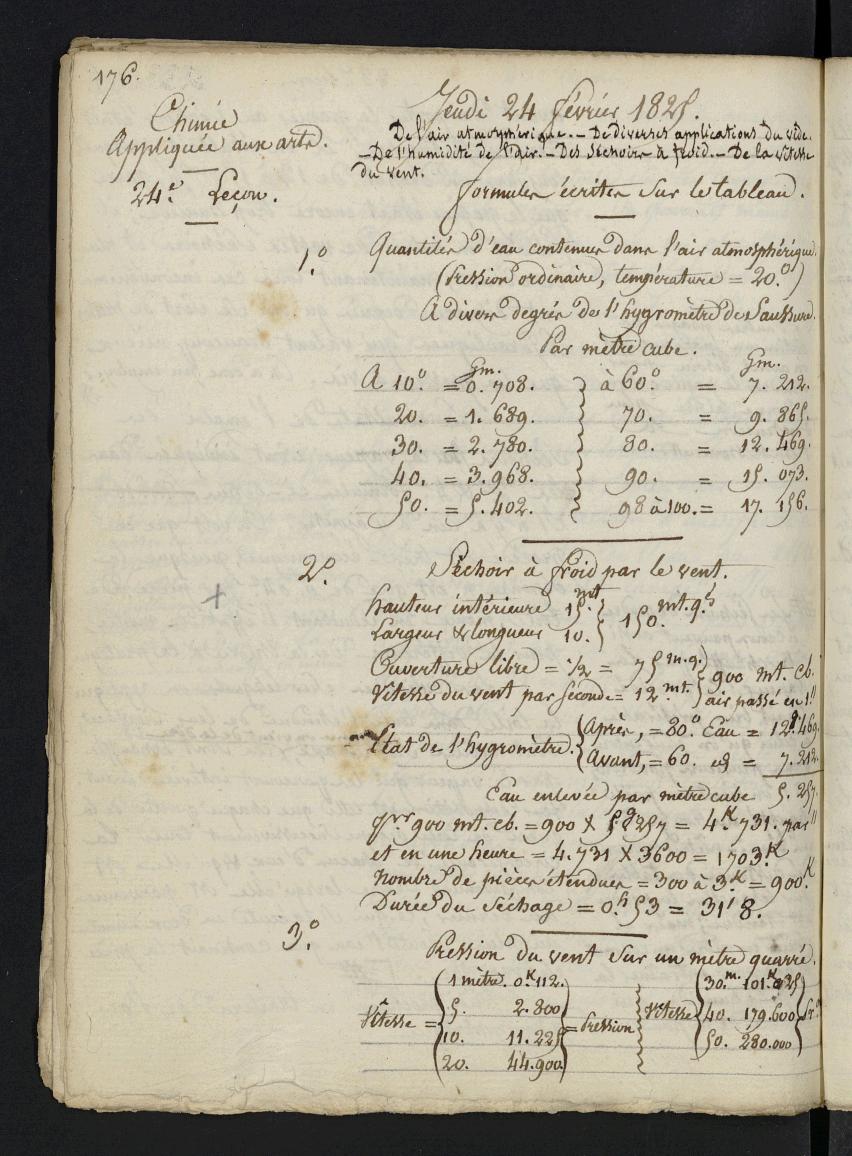 176.
Chimie
Appliquée aux arts.
24.e Leçon.
Jeudi 24 février 1825.
De l'air atmosphérique. - De diverses applications du vide.
- De l'humidité de l'air. - Des Séchoirs à froid. - De la vitesse
du vent.
formules écrites sur le tableau.
1.o Quantités d'eau contenues dans l'air atmosphérique.
(Pression ordinaire, température = 20.o)
A divers degrés de l'hygromètre de Saussure.
Par mètre cube.
Gm. Gm.
A 10.o = 0.708. à 60.o = 7.212.
20. = 1.689. 70. = 9.865.
30. = 2.780. 80. = 12.469.
40. = 3.968. 90. = 15.073.
50. = 5.402. 98 à 100. = 17.156.
2.o Séchoir à froid par le vent.
+
hauteur intérieure 15.mt
Largeur & longueur 10. } 150.mt.q.s
Ouverture libre = 1/2 = 75 m.q. } 900 mt. cb.
Vitesse du vent par seconde = 12.mt. air passé en 1."
Etat de l'hygromètre. { Après, = 80.o Eau = 12.g469.
Avant, = 60. id = 7.212.
Eau enlevée par mètre cube 5.257.
pr 900 mt. cb. = 900 X 5.g257 = 4.K731. par "
et en une heure = 4.731 X 3600 = 1703.K
Nombre de pièces étendues = 300 à 3.K = 900.K
Durée du séchage = 0.h53 = 31'8.
3.o
Pression du vent sur un mètre quarré.
Vitesse = { 1 mètre. 0.K112. } = Pression Vitesse { 30.m. 101.K025
5. 2.800 40. 179.600
10. 11.225 50. 280.000
20. 44.900